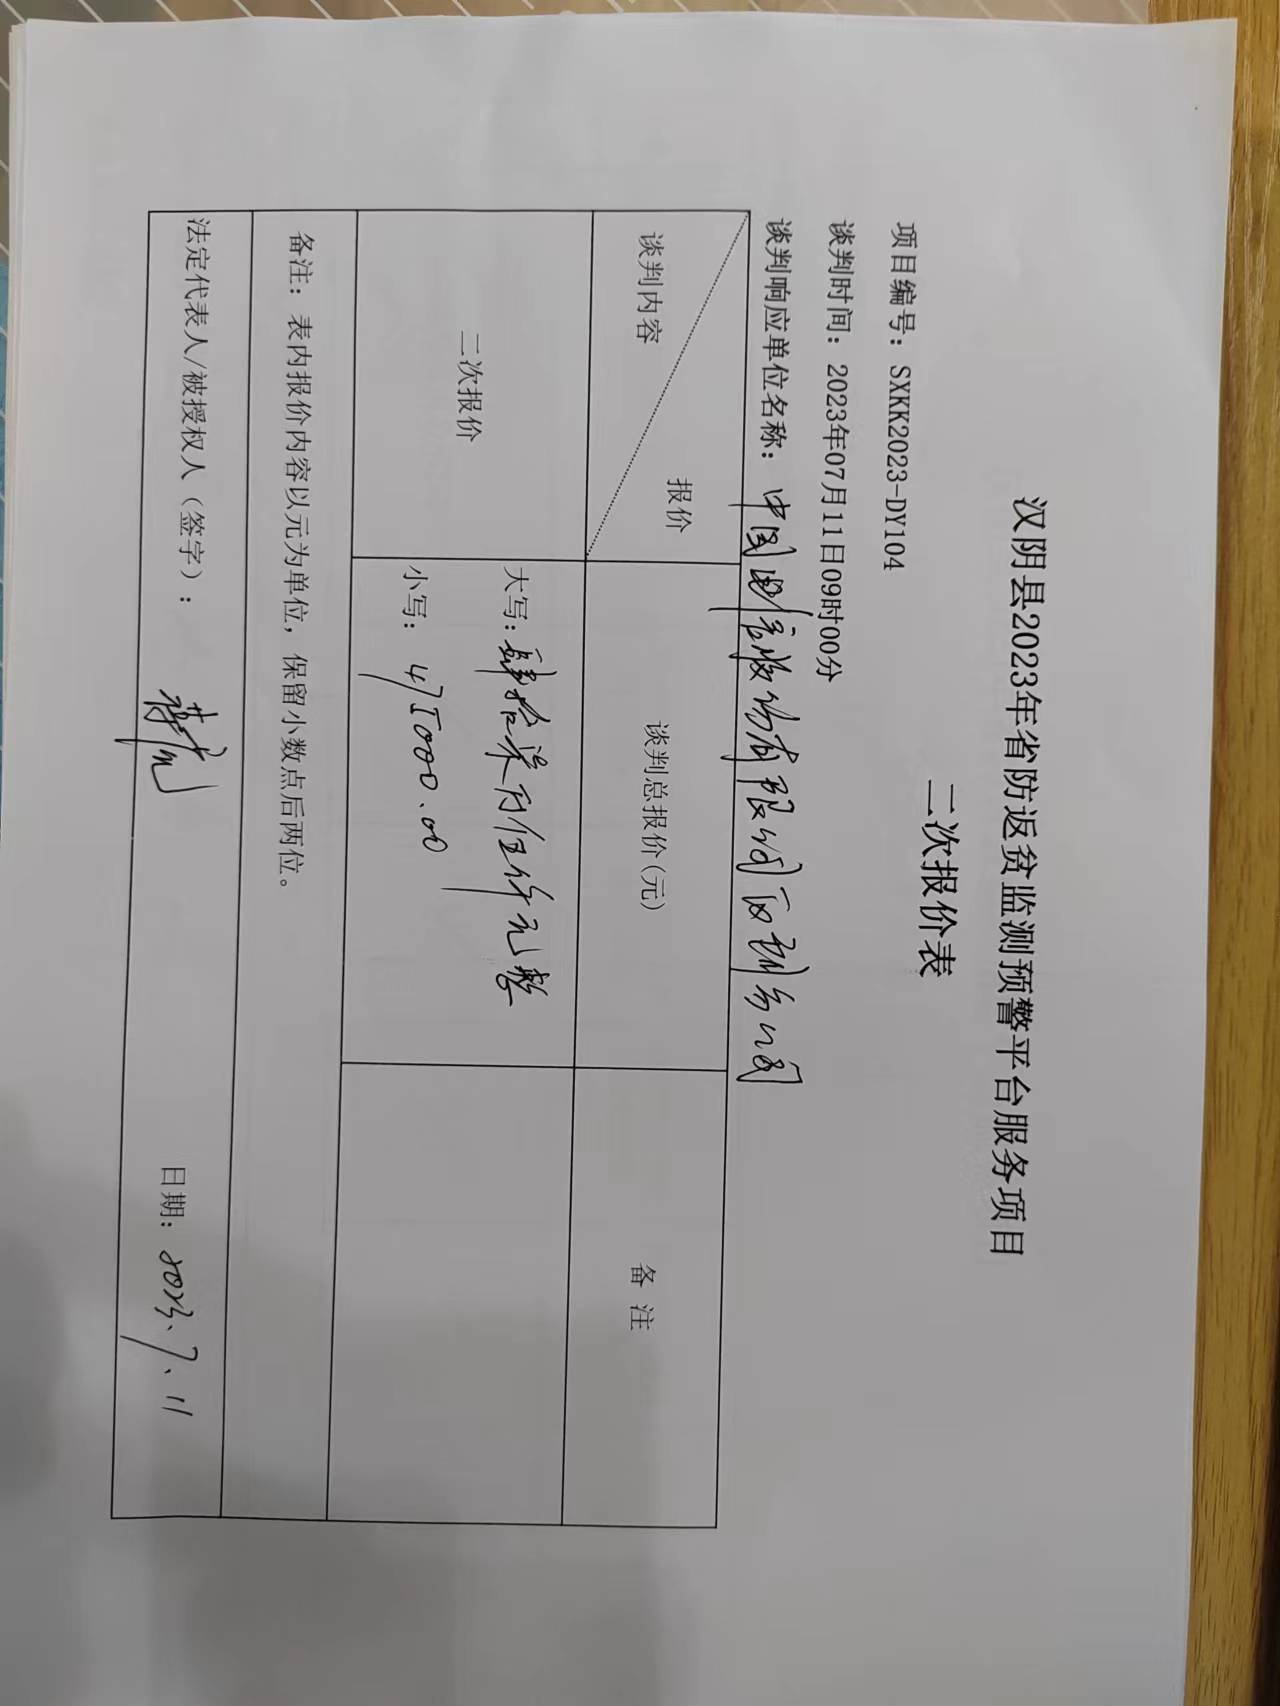 汉阴县2023年省防返贫监测预警平台服务项目
二次报价表
项目编号：SXKK2023-DY104
谈判时间：2023年07月11日09时00分
谈判响应单位名称：中国电信股份有限公司分公司
报价
谈判内容
谈判总报价(元)
备 注
二次报价
大写：肆拾柒万伍仟元整
小写：475000.00
备注：表内报价内容以元为单位，保留小数点后两位。
法定代表人/被授权人（签字）：
日期：2023、7、11